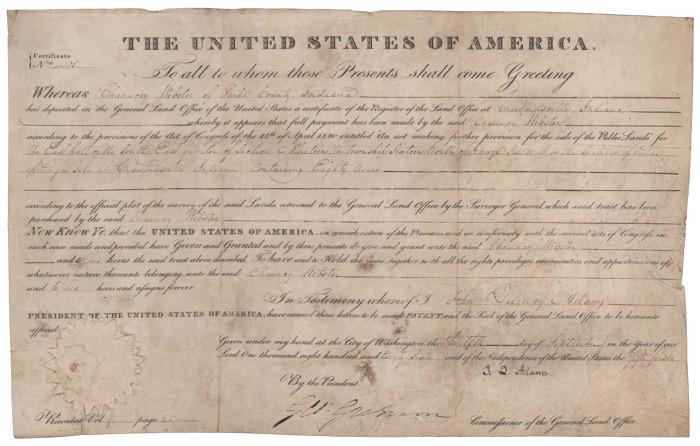 THE UNITED STATES OF AMERICA.
Certificate
No.
To all to whom these Presents shall come Greeting
WHEREAS Chauncey Webster of Parke County, Indiana
has deposited in the General Land Office of the United States a certificate of the Register of the Land Office at Crawfordsville, Indiana
whereby it appears that full payment has been made by the said Chauncey Webster
according to the provisions of the Act of Congress of the 24th of April 1820 entitled "An act making further provision for the sale of the Public Lands" for
the East half of the South East quarter of Section Nineteen, in township Sixteen North of Range in the district of Lands
offered for Sale at Crawfordsville Indiana Containing Eighty Acres
according to the official plat of the survey of the said Lands, returned to the General Land Office by the Surveyor General, which said tract has been
purchased by the said Chauncey Webster
NOW KNOW YE, that the UNITED STATES OF AMERICA, in consideration of the Premises and in conformity with the several acts of Congress in
such case made and provided have Given and Granted and by these presents do give and grant unto the said Chauncey Webster
and to his heirs the said tract above described. To have and to Hold the same together with all the rights privileges immunities and appurtenances of
whatsoever nature thereunto belonging unto the said Chauncey Webster
and to his heirs and assigns forever
In Testimony whereof I John Quincey Adams
PRESIDENT OF THE UNITED STATES OF AMERICA, have caused these letters to be made PATENT and the Seal of the General Land Office to be hereunto
affixed
Given under my hand at the City of Washington the twelfth day of September in the Year of our
Lord One thousand eight hundred and and of the Independence of the United States the
J. Q. Adams
By the President
Geo: Graham
Commissioner of the General Land Office
Recorded Vol page